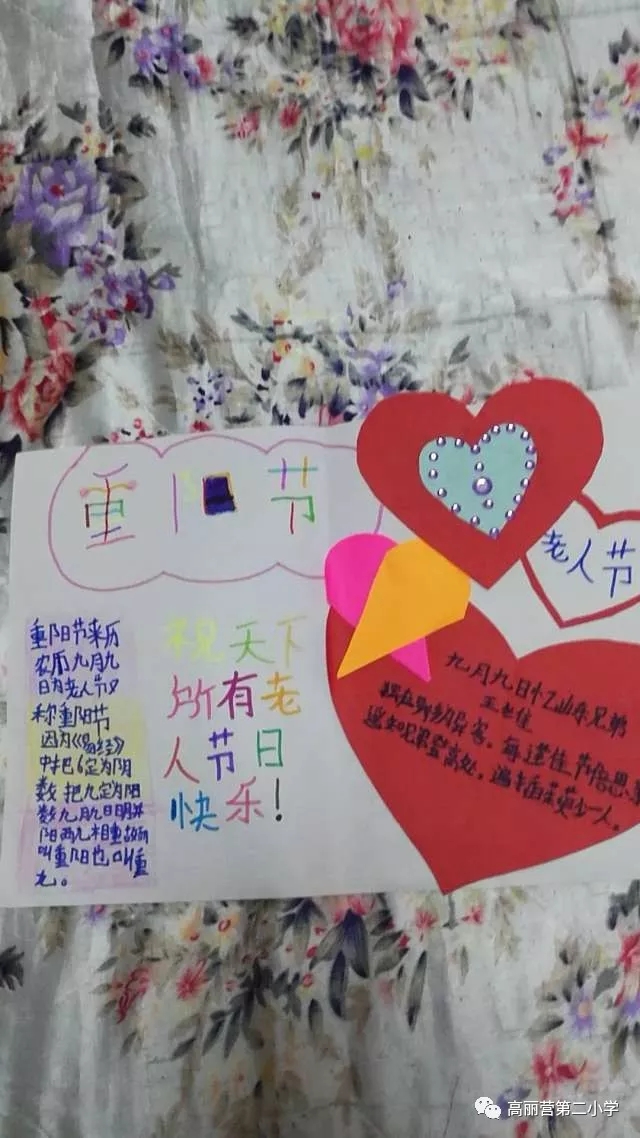 重阳节
老人节
重阳节来历
农历九月九
日为老人节又
称重阳节
因为《易经》
中把6定为阴
数把九定为阳
数九月九日日月并
阳两九相重故而
叫重阳也叫重
九。
祝天下
所有老
人节日
快乐!
九月九日忆山东兄弟
王
独在异乡为异客,每逢佳节倍思
遥知兄弟登高处,遍插茱萸少一人。
高丽营第二小学